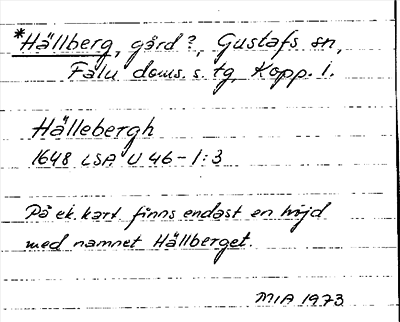 *Hällberg, gård?, Gustafs sn,
Falu doms. s. tg, Kopp. l.
Hällebergh
1648 LSA U 46-1:3
På ek. kart. finns endast en höjd
med namnet Hällberget.
MIA 1973